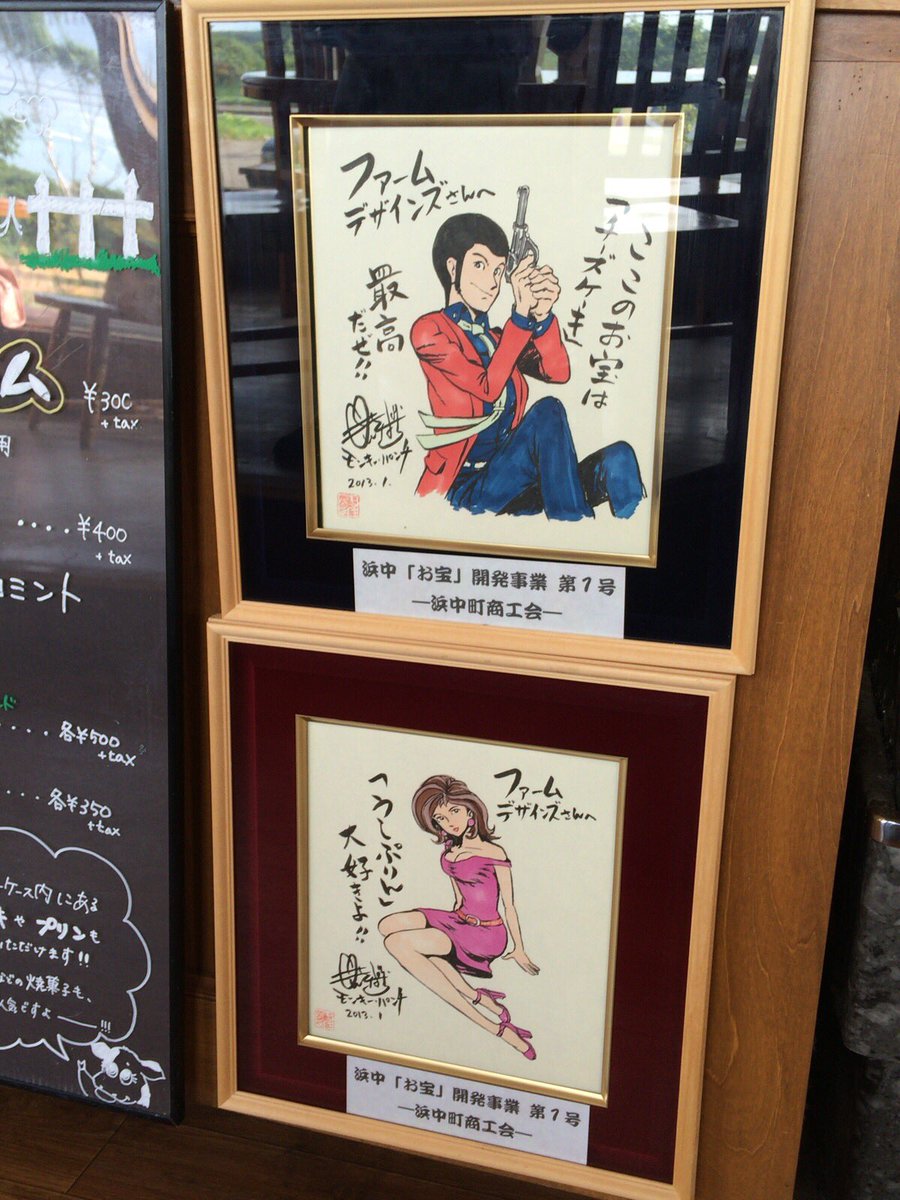 ム
¥300
+ tax
用
....¥400
+ tax
ミント
ド
....各¥500
+tax
...各¥350
+tax
ケース内にある
や プリンも
ただけます!!
の焼菓子も、
人気ですよ——!!!
ファーム
デザインズさんへ
ここのお宝は
チーズケーキ
最高
だぜ!!
モンキー・パンチ
2013.1.
浜中「お宝」開発事業 第1号
―浜中町商工会―
ファーム
デザインズさんへ
「うしぷりん」
大好きよ!!
モンキー・パンチ
2013.1
浜中「お宝」開発事業 第1号
―浜中町商工会―